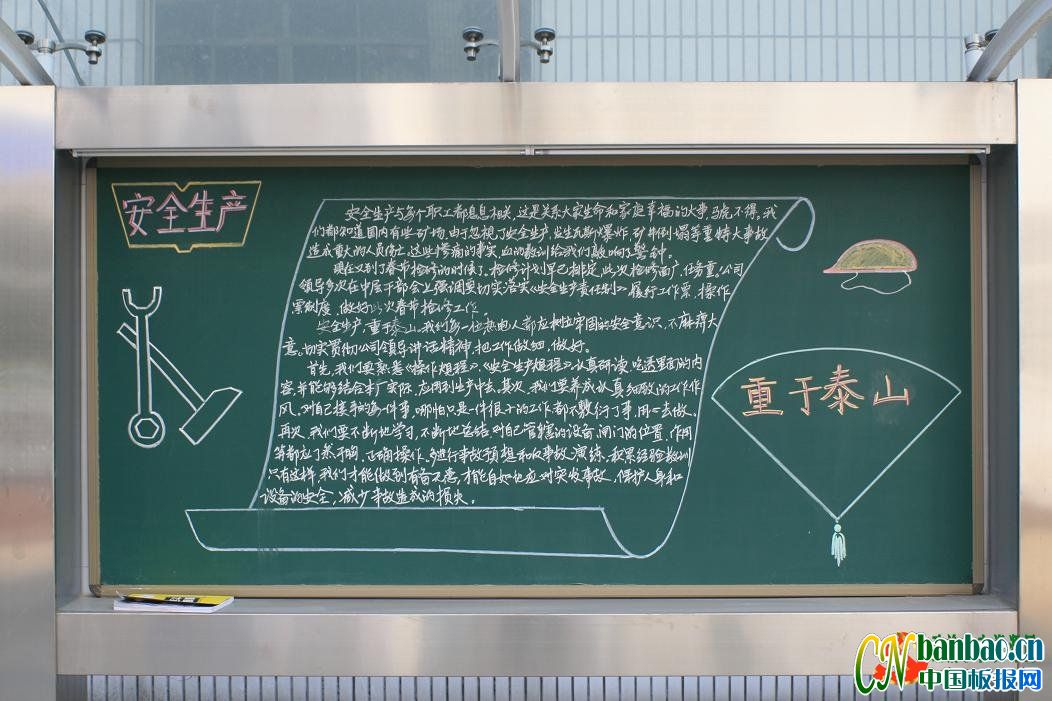 安全生产
安全生产与每个职工都息息相关,这是关系大家生命和家庭幸福的大事,马虎不得。我
们都知道国内有些矿场,由于忽视了安全生产,发生瓦斯爆炸,矿井倒塌等重特大事故
造成重大的人员伤亡,这些惨痛的事实,血的教训给我们敲响了警钟。
现在又到了春节检修的时候了,检修计划早已排定,此次检修面广,任务重。公司
领导多次在中层干部会上强调要切实落实《安全生产责任制》履行工作票,操作
票制度,做好此次春节检修工作。
安全生产,重于泰山。我们每一位热电人都应树立牢固的安全意识,不麻痹大
意。切实贯彻公司领导讲话精神,把工作做细,做好。
首先,我们要熟悉《操作规程》,《安全生产规程》,认真研读,吃透里面的内
容,并能够结合本厂实际,应用到生产中去。其次,我们要养成认真细致的工作作
风,对自己接手的每件事,哪怕只是一件很小的工作,都不敷衍了事,用心去做。
再次,我们要不断地学习,不断地总结,对自己管辖的设备,阀门的位置,作用
等都应了然于胸,正确操作。多进行事故预想和反事故演练,积累经验教训
只有这样,我们才能做到有备无患,才能自如地应对突发事故,保护人身和
设备的安全,减少事故造成的损失。
重于泰山
CNbanbao.cn
中国板报网